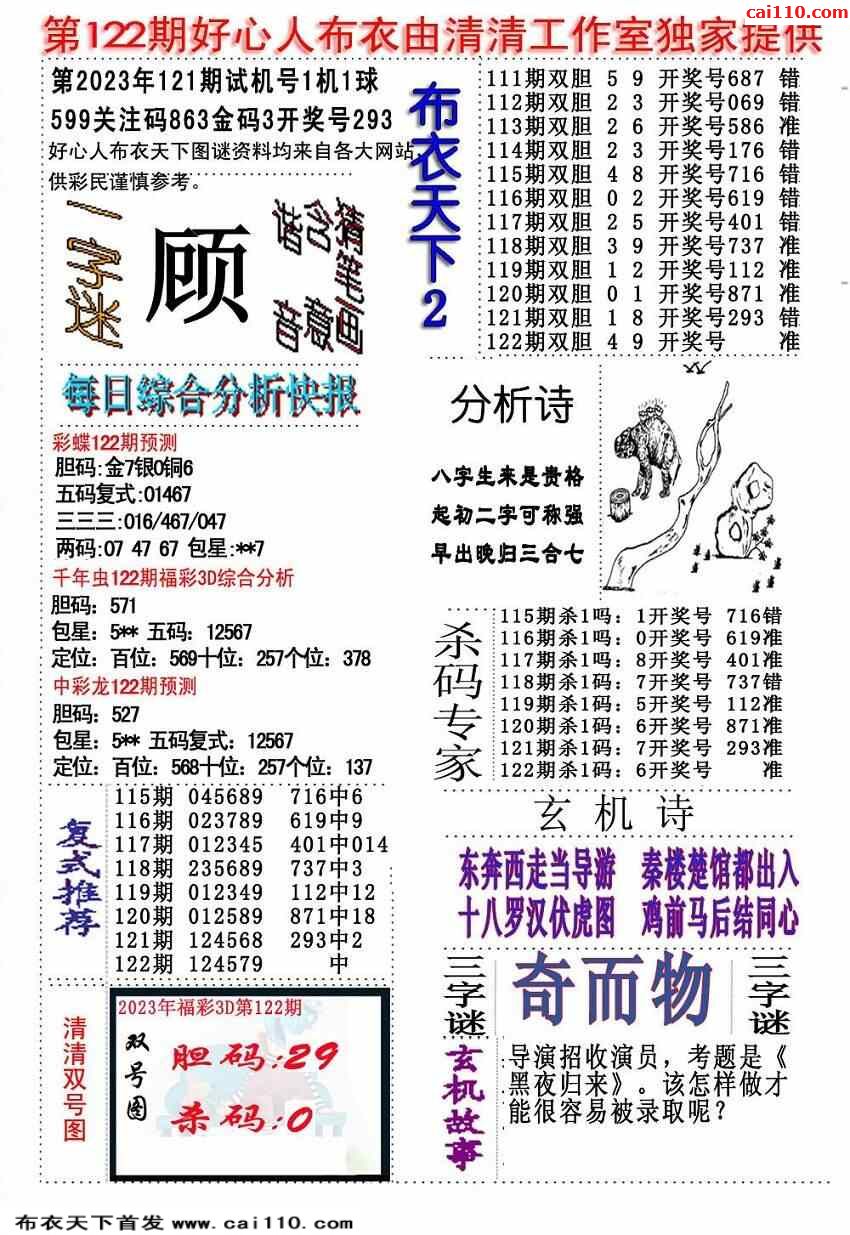 cai110.com
第122期好心人布衣由清清工作室独家提供
第2023年121期试机号1机1球
599关注码863金码3开奖号293
好心人布衣天下图谜资料均来自各大网站，
供彩民谨慎参考。
一字迷
顾
猜笔画
含意
谐音
布衣天下2
111期双胆 5 9 开奖号687 错
112期双胆 2 3 开奖号069 错
113期双胆 2 6 开奖号586 准
114期双胆 2 3 开奖号176 错
115期双胆 4 8 开奖号716 错
116期双胆 0 2 开奖号619 错
117期双胆 2 5 开奖号401 错
118期双胆 3 9 开奖号737 准
119期双胆 1 2 开奖号112 准
120期双胆 0 1 开奖号871 准
121期双胆 1 8 开奖号293 错
122期双胆 4 9 开奖号 准
每日综合分析快报
彩蝶122期预测
胆码:金7银0铜6
五码复式:01467
三三三:016/467/047
两码:07 47 67 包星:**7
千年虫122期福彩3D综合分析
胆码：571
包星：5** 五码：12567
定位：百位：569十位：257个位：378
中彩龙122期预测
胆码：527
包星：5** 五码复式：12567
定位：百位：568十位：257个位：137
分析诗
八字生来是贵格
起初二字可称强
早出晚归三合七
杀码专家
115期杀1吗：1开奖号 716错
116期杀1吗：0开奖号 619准
117期杀1吗：8开奖号 401准
118期杀1码：7开奖号 737错
119期杀1码：5开奖号 112准
120期杀1码：6开奖号 871准
121期杀1码：7开奖号 293准
122期杀1码：6开奖号 准
复式推荐
115期 045689 716中6
116期 023789 619中9
117期 012345 401中014
118期 235689 737中3
119期 012349 112中12
120期 012589 871中18
121期 124568 293中2
122期 124579 中
玄机诗
东奔西走当导游 秦楼楚馆都出入
十八罗汉伏虎图 鸡前马后结同心
三字谜
奇而物
三字谜
清清双号图
2023年福彩3D第122期
双号图
胆码:29
杀码:0
玄机故事
导演招收演员，考题是《
黑夜归来》。该怎样做才
能很容易被录取呢？
布衣天下首发 www.cai110.com